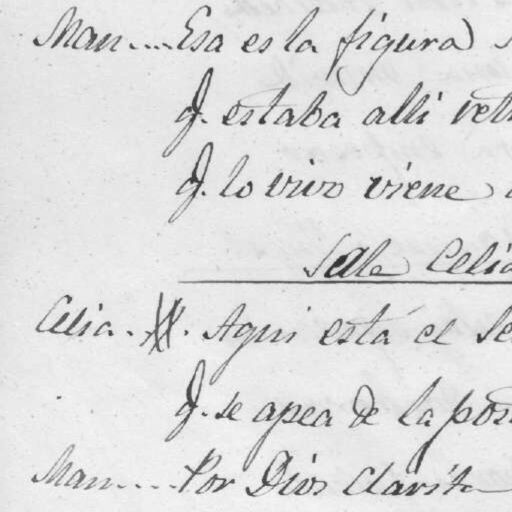 Man.... Esa es la figura
q. estaba alli
q. lo vivo viene
Sale Celia
Celia. Aqui está el
q. se apea de la
Man..... Por Dios Clarita